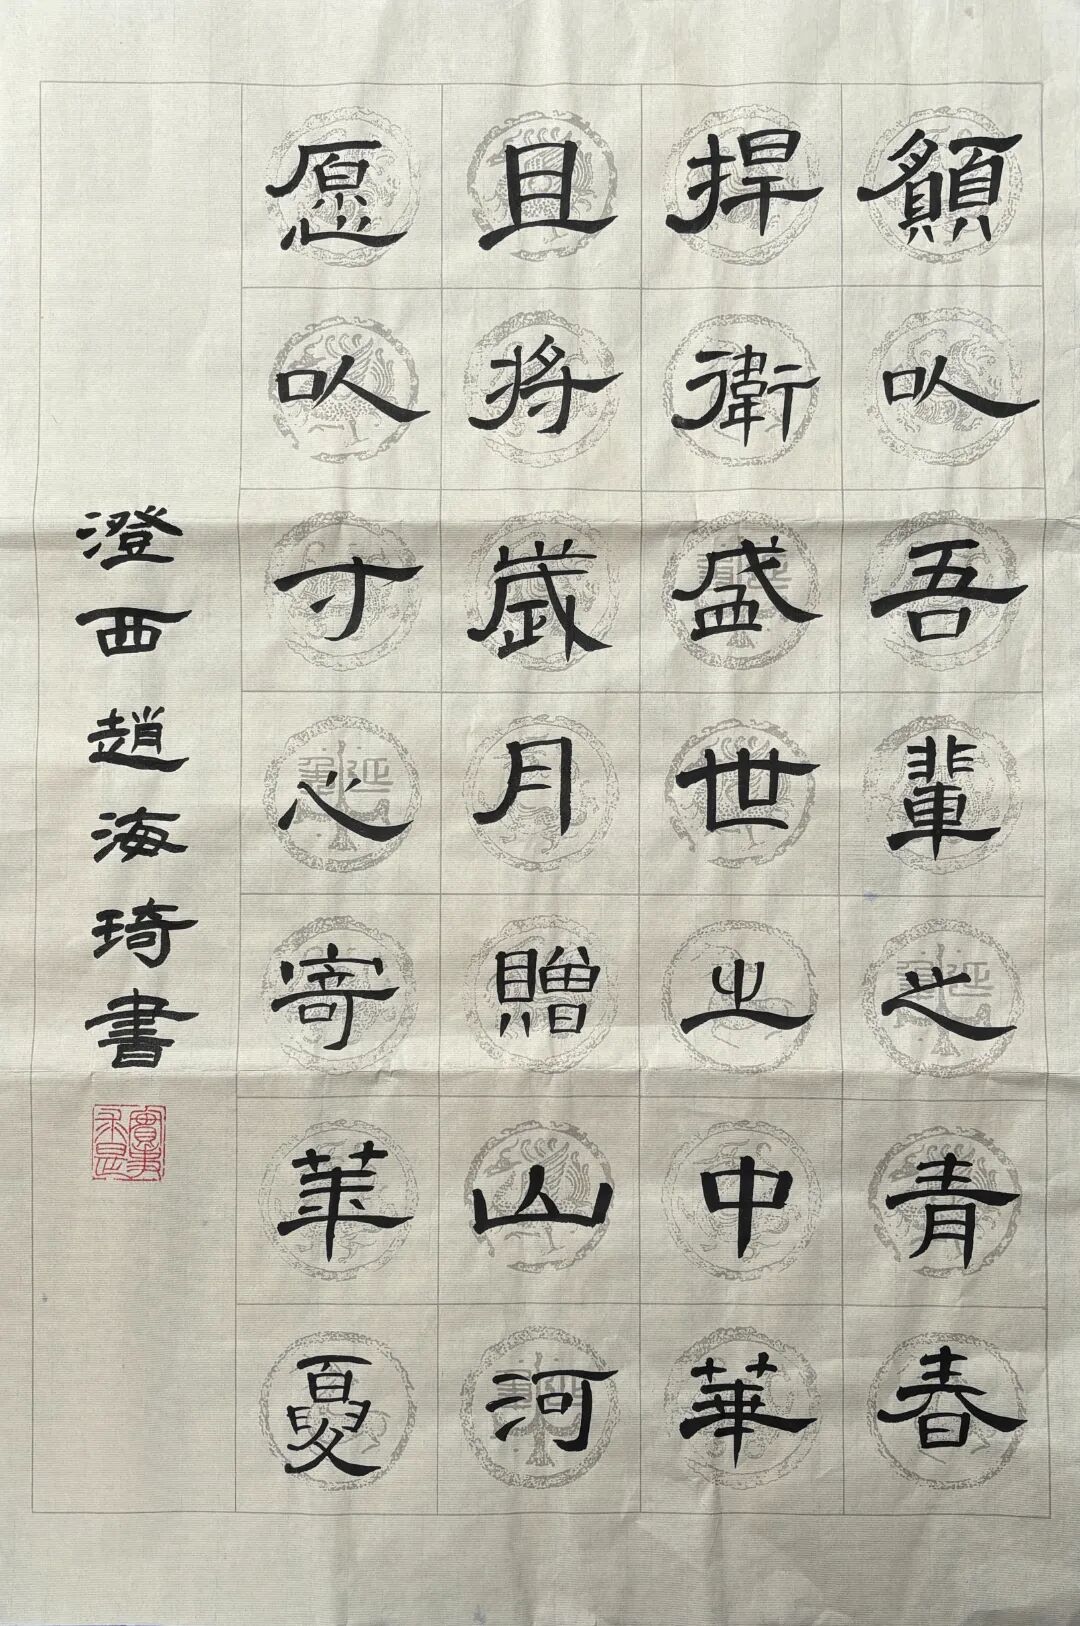 願以吾輩之青春
捍衛盛世之中華
且将歲月贈山河
愿以寸心寄華夏
澄西趙海琦書
實事求是